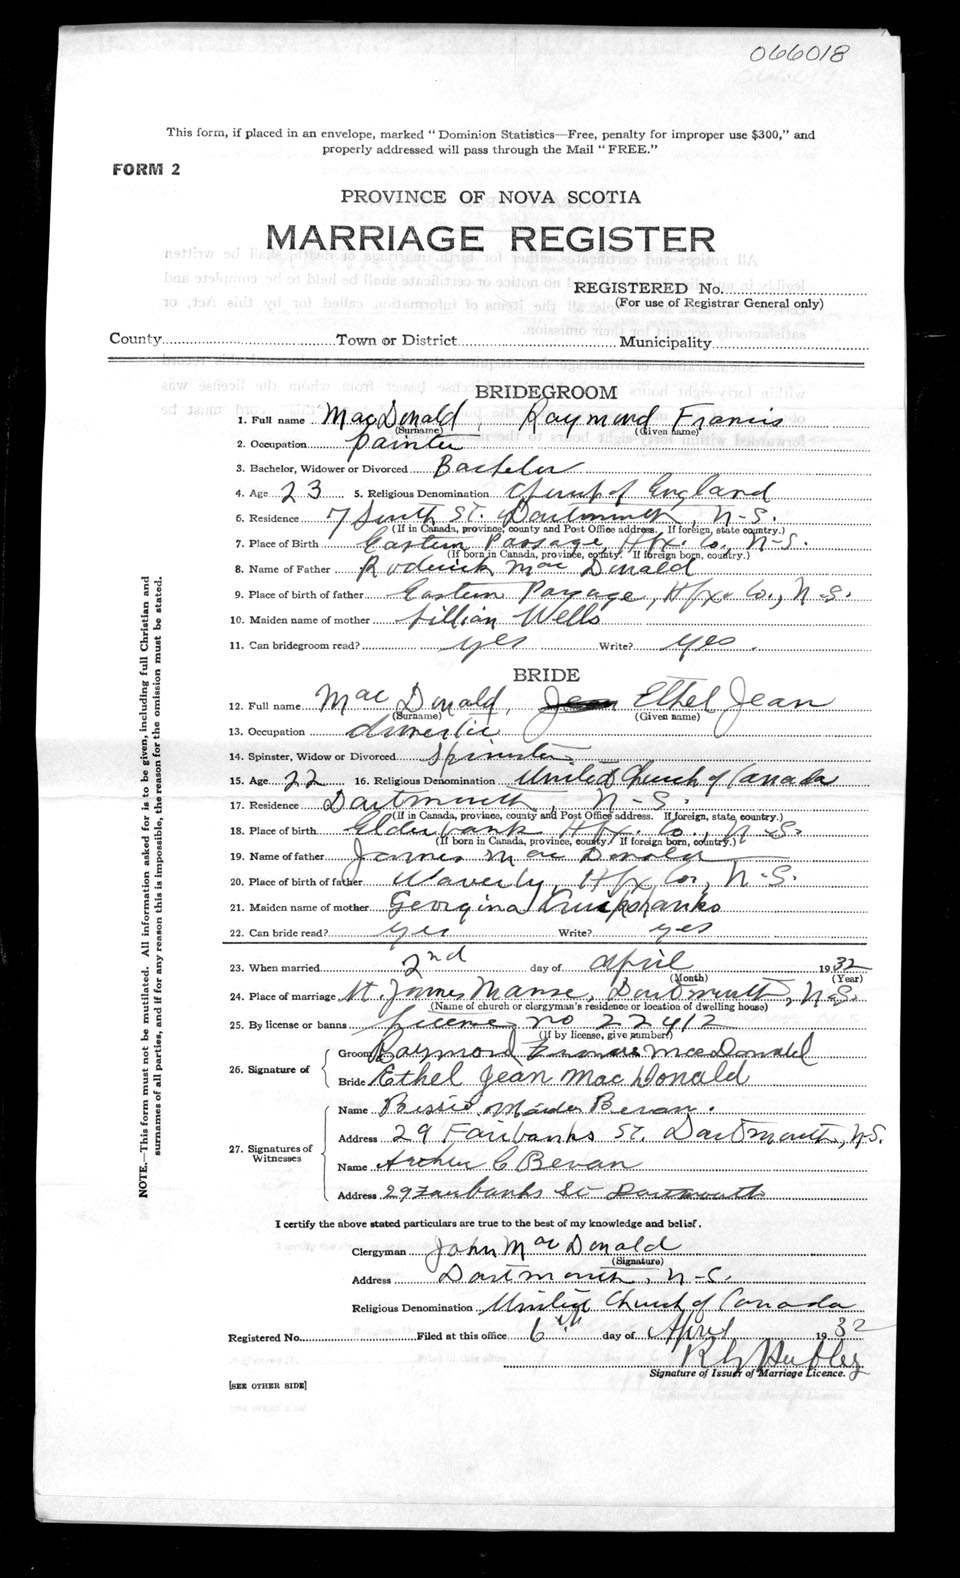 066018
This form, if placed in an envelope, marked "Dominion Statistics—Free, penalty for improper use $300," and
properly addressed will pass through the Mail "FREE."
FORM 2
PROVINCE OF NOVA SCOTIA
MARRIAGE REGISTER
REGISTERED No.
(For use of Registrar General only)
County Town or District Municipality
BRIDEGROOM
1. Full name MacDonald, Raymond Francis
(Surname) (Given name)
2. Occupation painter
3. Bachelor, Widower or Divorced Bachelor
4. Age 23 5. Religious Denomination Church of England
6. Residence 7 South St. Dartmouth, N-S.
(If in Canada, province, county and Post Office address. If foreign, state country.)
7. Place of Birth Eastern Passage, Hfx. Co., N-S.
(If born in Canada, province, county. If foreign born, country.)
8. Name of Father Roderick Mac Donald
9. Place of birth of father Eastern Passage, Hfx. Co., N-S.
10. Maiden name of mother Lillian Wells
11. Can bridegroom read? yes Write? yes.
BRIDE
12. Full name Mac Donald, Jean Ethel Jean
(Surname) (Given name)
13. Occupation domestic
14. Spinster, Widow or Divorced Spinster
15. Age 22 16. Religious Denomination United Church of Canada
17. Residence Dartmouth, N-S.
(If in Canada, province, county and Post Office address. If foreign, state country.)
18. Place of birth Elderbank Hfx. Co., N-S.
(If born in Canada, province, county. If foreign born, country.)
19. Name of father James Mac Donald
20. Place of birth of father Waverly, Hfx Co., N-S.
21. Maiden name of mother Georgina Cruikshanks
22. Can bride read? yes Write? yes
23. When married 2nd day of April 1932
(Month) (Year)
24. Place of marriage St. James Manse, Dartmouth, N-S.
(Name of church or clergyman's residence or location of dwelling house)
25. By license or banns License no 22412
(If by license, give number)
26. Signature of
Groom Raymond Francis MacDonald
Bride Ethel Jean MacDonald
27. Signatures of Witnesses
Name Bessie Bevan.
Address 29 Fairbanks St. Dartmouth, N.S.
Name Arthur C Bevan
Address 29 Fairbanks St Dartmouth
I certify the above stated particulars are true to the best of my knowledge and belief.
Clergyman John MacDonald
(Signature)
Address Dartmouth, N-S.
Religious Denomination United Church of Canada
Registered No. Filed at this office 6th day of April 1932
Signature of Issuer of Marriage Licence.
[SEE OTHER SIDE]
NOTE.—This form must not be mutilated. All information asked for is to be given, including full Christian and
surnames of all parties, and if for any reason this is impossible, the reason for the omission must be stated.